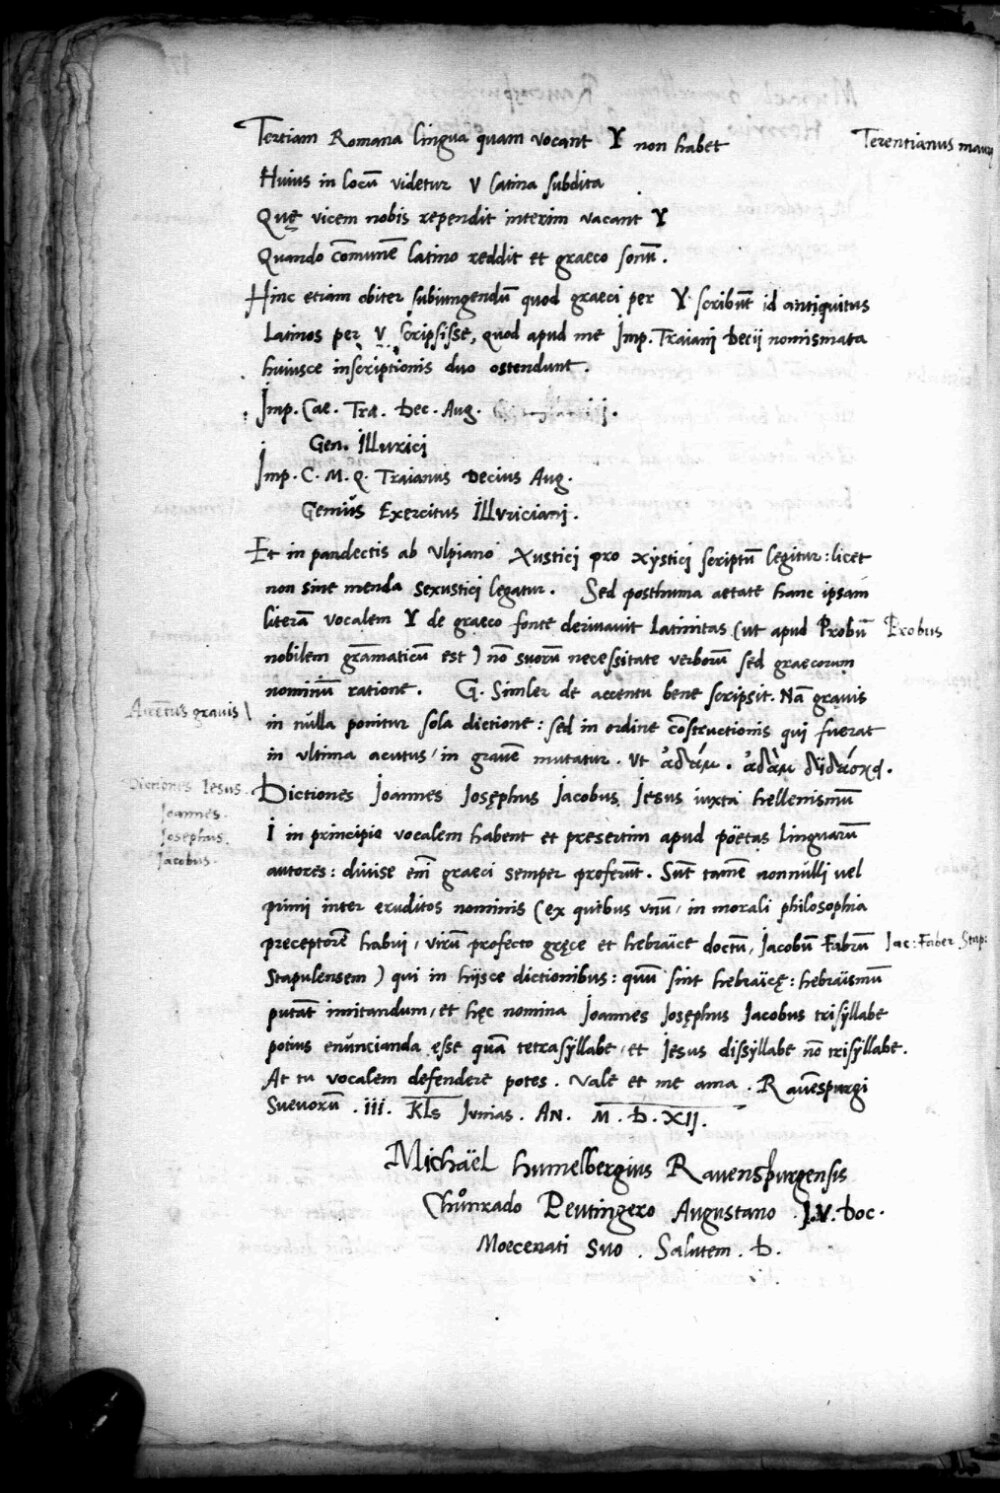 Tertiam Romana lingua quam vocant Y non habet
Terentianus maur
Huius in locū videtur V latina subdita
Quę vicem nobis rependit interim vacant Y
Quando cōmunē latino reddit et graeco sonū.
Hinc etiam obiter subiungendū quod graeci per Y scribūt id antiquitus
Latinos per V scripsisse, quod apud me Imp. Traianj Decij nomismata
huiusce inscriptionis duo ostendunt.
Imp. Cae. Tra. Dec. Aug.
Gen. Illuricj
Imp. C. M. Q. Traianus Decius Aug.
Geniús Exercitus Illuricianj.
Et in pandectis ab Vlpiano Xusticj pro xysticj scriptū legitur: licet
non sine menda sexusticj legatur. Sed posthuma aetate hanc ipsam
literā vocalem Y de graeco fonte deriuauit Latinitas (ut apud Probū
Probus
nobilem grāmaticum est) nō suorū necessitate verborū sed graecorum
nominū ratione. G. Simler de accentu bene scripsit. Nā grauis
Accētus grauis
in nulla ponitur sola dictione: sed in ordine cōstructionis qui fuerat
in ultima acutus, in grauē mutatur. Ut ἀδάμ. ἀδὰμ
Dictiones Iesus.
Joannes.
Josephus.
Jacobus.
Dictiones Joannes Josephus Jacobus Jesus iuxta hellenismū
I in principio vocalem habent et presertim apud poëtas linguarū
autores: diuise em̄ graeci semper proferūt. Sūt tamē nonnulli vel
primi inter eruditos nominis (ex quibus vnū, in morali philosophia
preceptorē habuj, virū profecto gręce et hebraïce doctū, Jacobū Fabrū
Jac: Faber Stap:
Stapulensem) qui in hijsce dictionibus: quū sint hebraïcę: hebraïsmū
putāt imitandum, et hęc nomina Joannes Josephus Jacobus trisyllabe
potius enuncianda esse quā tetrasyllabe, et Jesus dissyllabe nō trisyllabe.
At tu vocalem defendere potes. Vale et me ama. Rauēspurgi
Sueuorū. III. Kls Junias. AN. M. D. XIJ.
Michäel humelbergius Rauenspurgensis
Chůnrado Peutingero Augustano J.V. Doc.
Moecenati suo. Salutem. D.